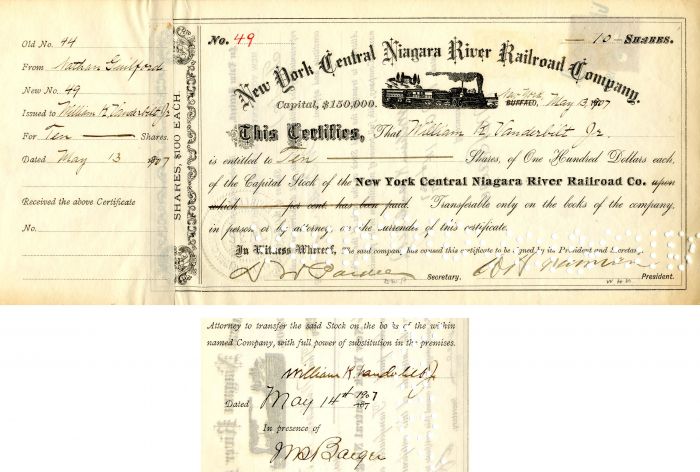 Old No. 44
From Nathan Guilford
New No. 49
Issued to William K Vanderbilt Jr
For Ten Shares.
Dated May 13 1907
Received the above Certificate
No.
SHARES, $100 EACH.
No. 49
10 SHARES.
New York Central Niagara River Railroad Company.
Capital, $150,000.
New York, BUFFALO, May 13, 1907
This Certifies, That William K Vanderbilt Jr.
is entitled to Ten Shares, of One Hundred Dollars each,
of the Capital Stock of the New York Central Niagara River Railroad Co. upon
which per cent has been paid. Transferable only on the books of the company,
in person or by attorney, on the surrender of this certificate.
In Witness Whereof, the said company has caused this certificate to be signed by its President and Secretary.
Secretary.
President.
D.W.P.
W H N
Attorney to transfer the said Stock on the books of the within
named Company, with full power of substitution in the premises.
William K Vanderbilt Jr
Dated May 14th 1907
187
In presence of